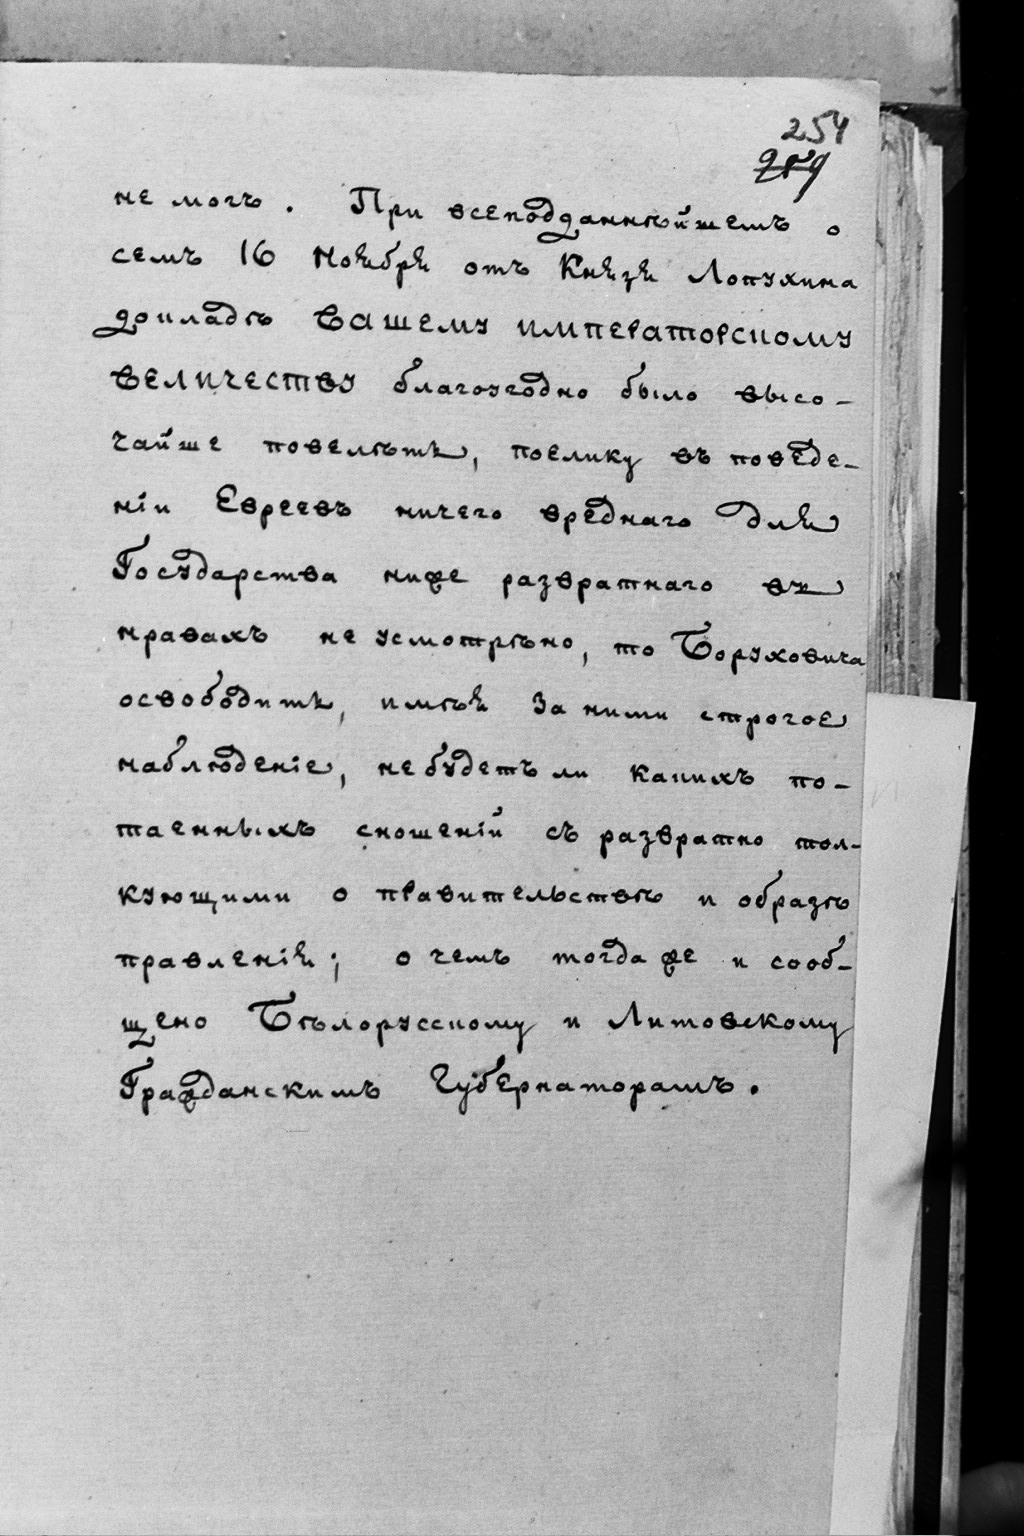 254
259
не могъ. При всеподданнѣйшемъ о
семъ 16 Ноября отъ Князя Лопухина
докладѣ ВАШЕМУ ИМПЕРАТОРСКОМУ
ВЕЛИЧЕСТВУ благоугодно было высо-
чайше повелѣть, поелику въ поведе-
нiи Евреевъ ничего вреднаго для
Государства ниже развратнаго въ
нравахъ не усмотрѣно, то Боруховича
освободить, имѣя за ними строгое
наблюденiе, не будетъ ли какихъ по-
таенныхъ сношенiй съ развратно тол-
кующими о правительствѣ и образѣ
правленiя; о чемъ тогда же и сооб-
щено Бѣлорусскому и Литовскому
Гражданскимъ Губернаторамъ.